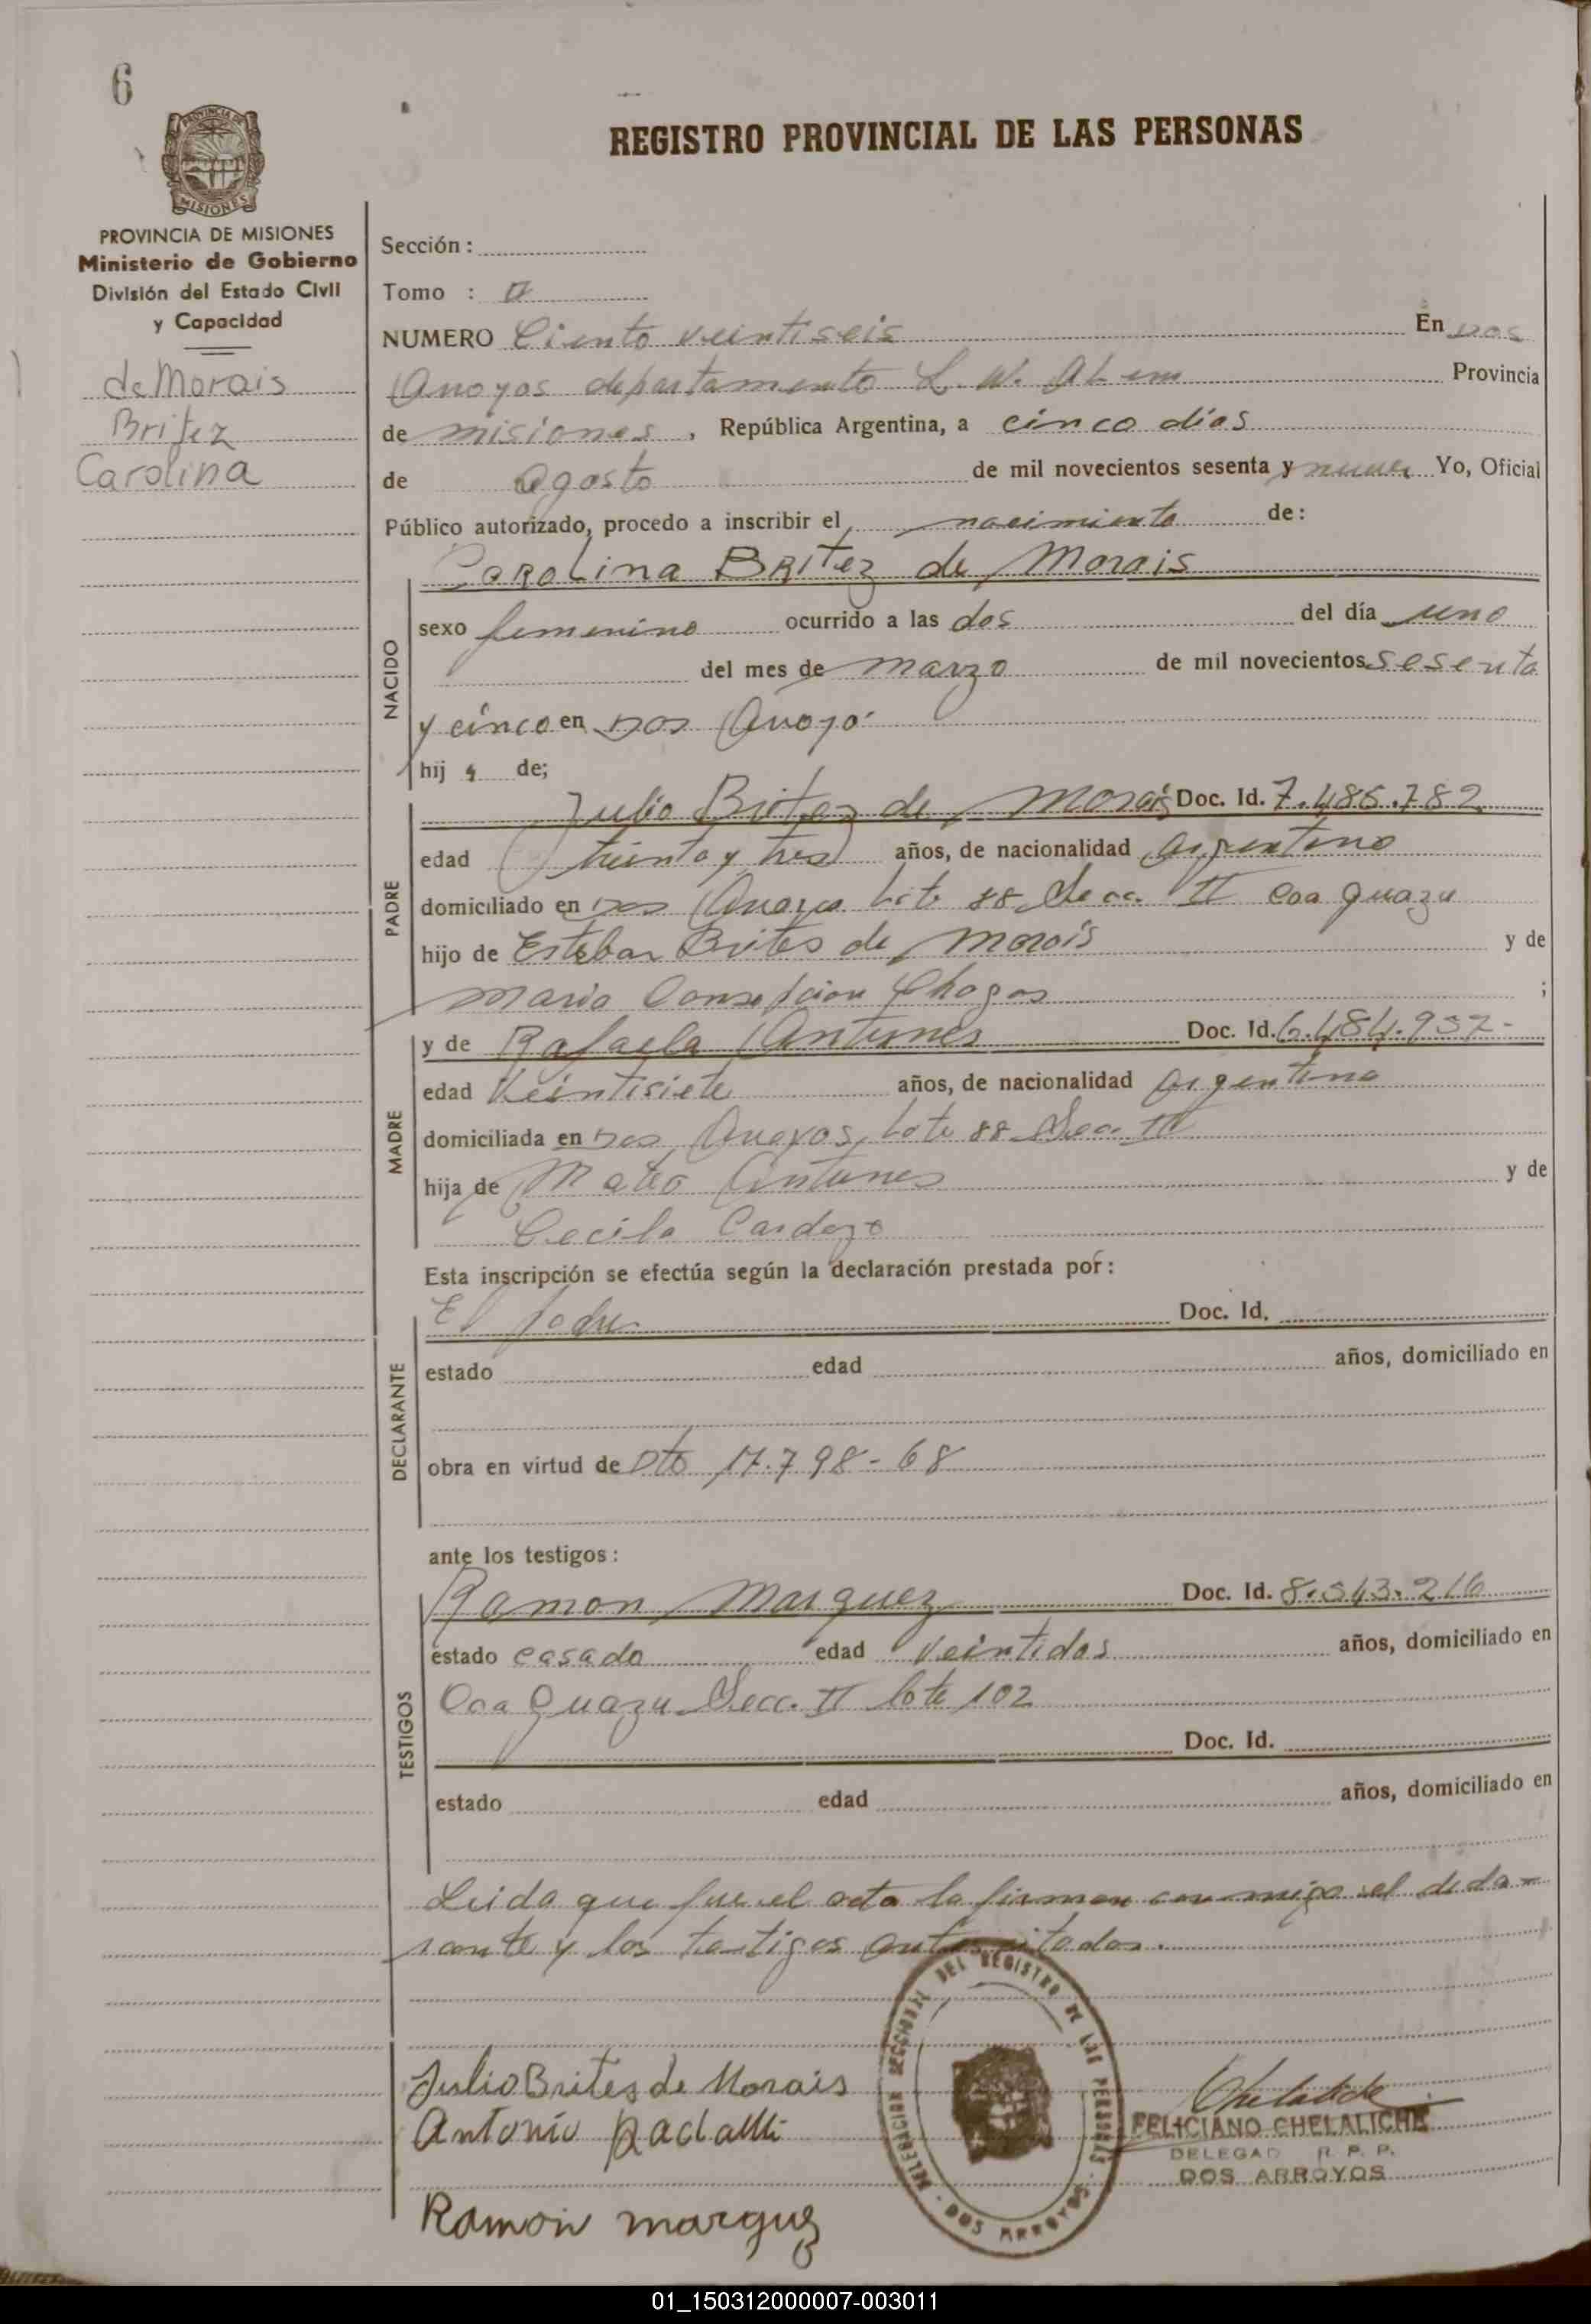 6
PROVINCIA DE MISIONES
PROVINCIA DE MISIONES
Ministerio de Gobierno
División del Estado Civil
y Capacidad
de Morais
Britez
Carolina
REGISTRO PROVINCIAL DE LAS PERSONAS
Sección:
Tomo :
NUMERO Ciento veintiseis En Dos
Arroyos departamento L. N. Alem Provincia
de misiones, República Argentina, a cinco días
de agosto de mil novecientos sesenta y nueve Yo, Oficial
Público autorizado, procedo a inscribir el nacimiento de:
NACIDO
Carolina Britez de Morais
sexo femenino ocurrido a las dos del día uno
del mes de marzo de mil novecientos sesenta
y cinco en Dos Arroyo
hij a de;
PADRE
Julio Britez de Morais Doc. Id. 7.486.782
edad treinta y tres años, de nacionalidad argentino
domiciliado en Dos Arroyos Lote 88 Secc. II Caa Guazu
hijo de Esteban Brites de Morais y de
Maria Chagas ;
MADRE
y de Rafaela Antunes Doc. Id. 6.484.937-
edad Veintisiete años, de nacionalidad argentina
domiciliada en Dos Arroyos, Lote 88 Sec. II
hija de Mateo Antunes y de
Cecila Cardozo
Esta inscripción se efectúa según la declaración prestada por:
DECLARANTE
El Padre Doc. Id.
estado edad años, domiciliado en
obra en virtud de Dto 17.798-68
ante los testigos:
TESTIGOS
Ramon Marquez Doc. Id. 8.543.216
estado casado edad veintidos años, domiciliado en
Caa Guazu Secc. II lote 102
Doc. Id.
estado edad años, domiciliado en
Leida que fue el acta la firman conmigo el decla-
rante y los testigos antes citados.
DELEGACION SECCIONAL DEL REGISTRO DE LAS PERSONAS - DOS ARROYOS
Julio Brites de Morais
Antonio
Ramon marquez
FELICIANO CHELALICHE
DELEGAD R. P. P.
DOS ARROYOS
01_150312000007-003011